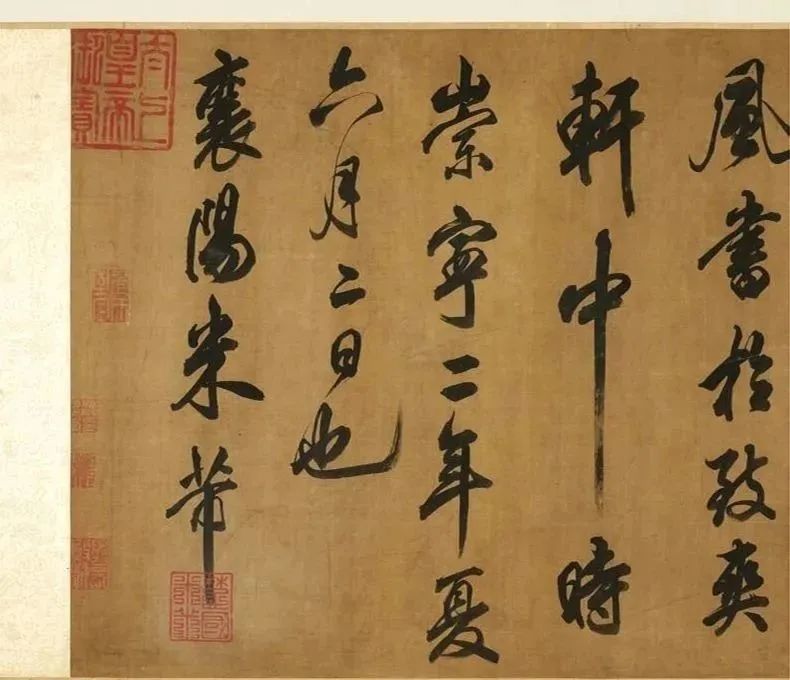 風書於致爽
軒中時
崇寧二年夏
六月二日也
襄陽米芾